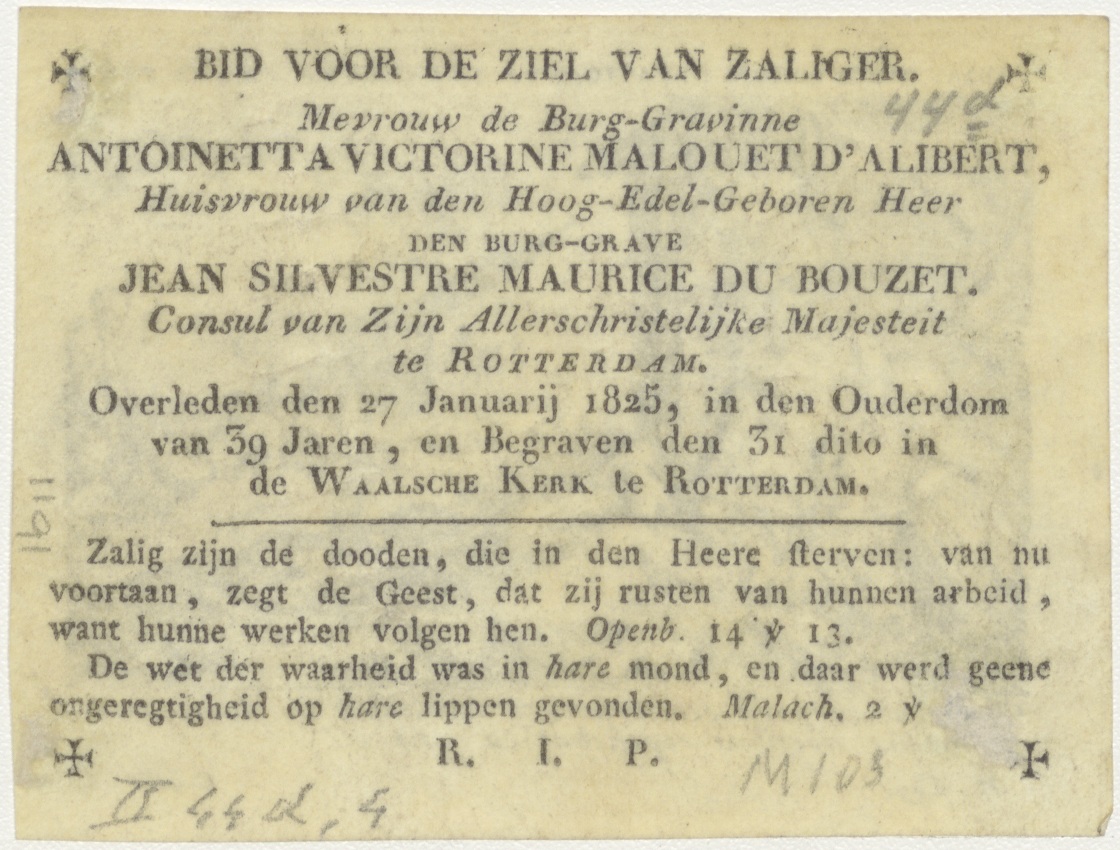 ✠ BID VOOR DE ZIEL VAN ZALIGER. ✠
44d
Mevrouw de Burg-Gravinne
ANTOINETTA VICTORINE MALOUET D'ALIBERT,
Huisvrouw van den Hoog-Edel-Geboren Heer
DEN BURG-GRAVE
JEAN SILVESTRE MAURICE DU BOUZET.
Consul van Zijn Allerschristelijke Majesteit
te ROTTERDAM.
Overleden den 27 Januarij 1825, in den Ouderdom
van 39 Jaren, en Begraven den 31 dito in
de WAALSCHE KERK te ROTTERDAM.
1611
Zalig zijn de dooden, die in den Heere sterven: van nu
voortaan, zegt de Geest, dat zij rusten van hunnen arbeid,
want hunne werken volgen hen. Openb. 14 ℣ 13.
De wet der waarheid was in hare mond, en daar werd geene
ongeregtigheid op hare lippen gevonden. Malach. 2 ℣
✠ R. I. P. ✠
M103
II 44d, 4